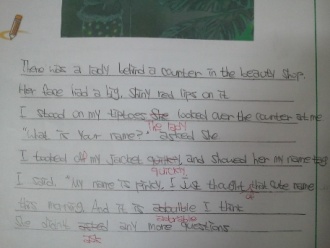 There was a lady behind a counter in the beauty shop.
Her face had a big, shiny red lips on it
I stood on my tiptoes She looked over the counter at me
The lady
"What is your name?" asked she
I tooked off my jacket quickly and showed her my name tag
quickly
I said. "My name is pinky. I just thought that cute name
this morning. And it is adorable I think
adorable
She didn't asked any more questions
ask